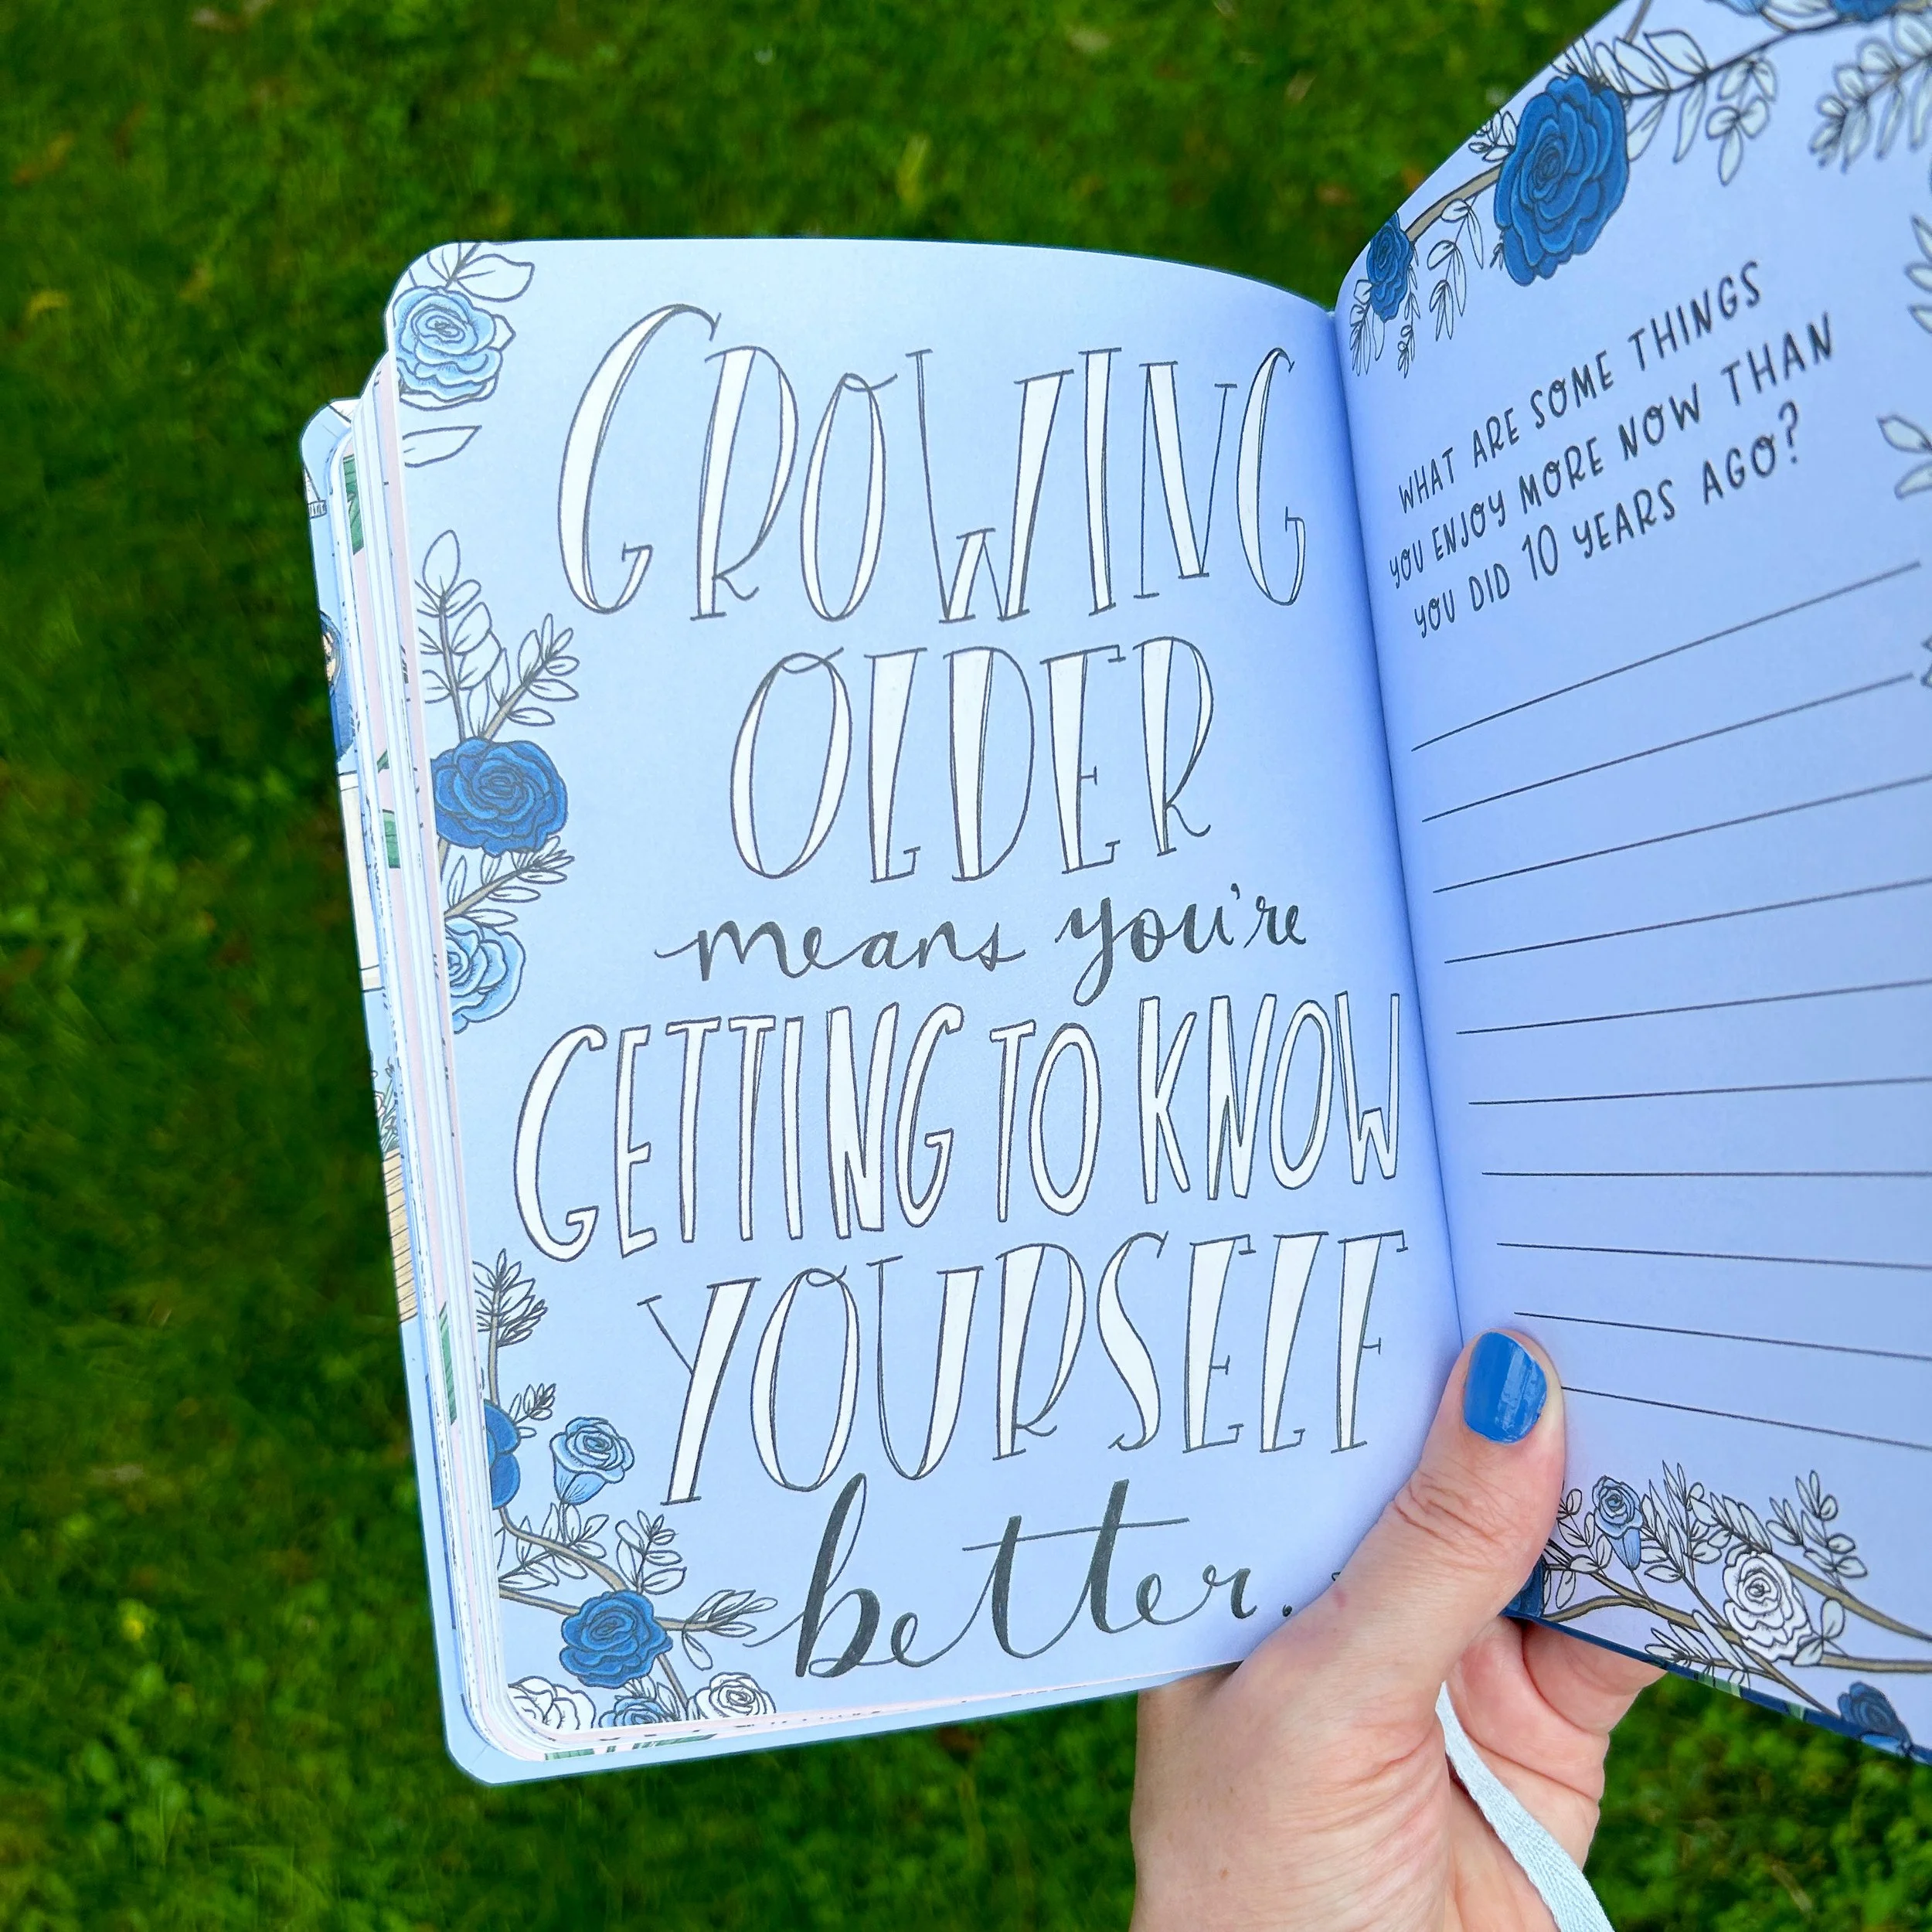 GROWING
OLDER
means you're
GETTING TO KNOW
YOURSELF
better.
WHAT ARE SOME THINGS
YOU ENJOY MORE NOW THAN
YOU DID 10 YEARS AGO?